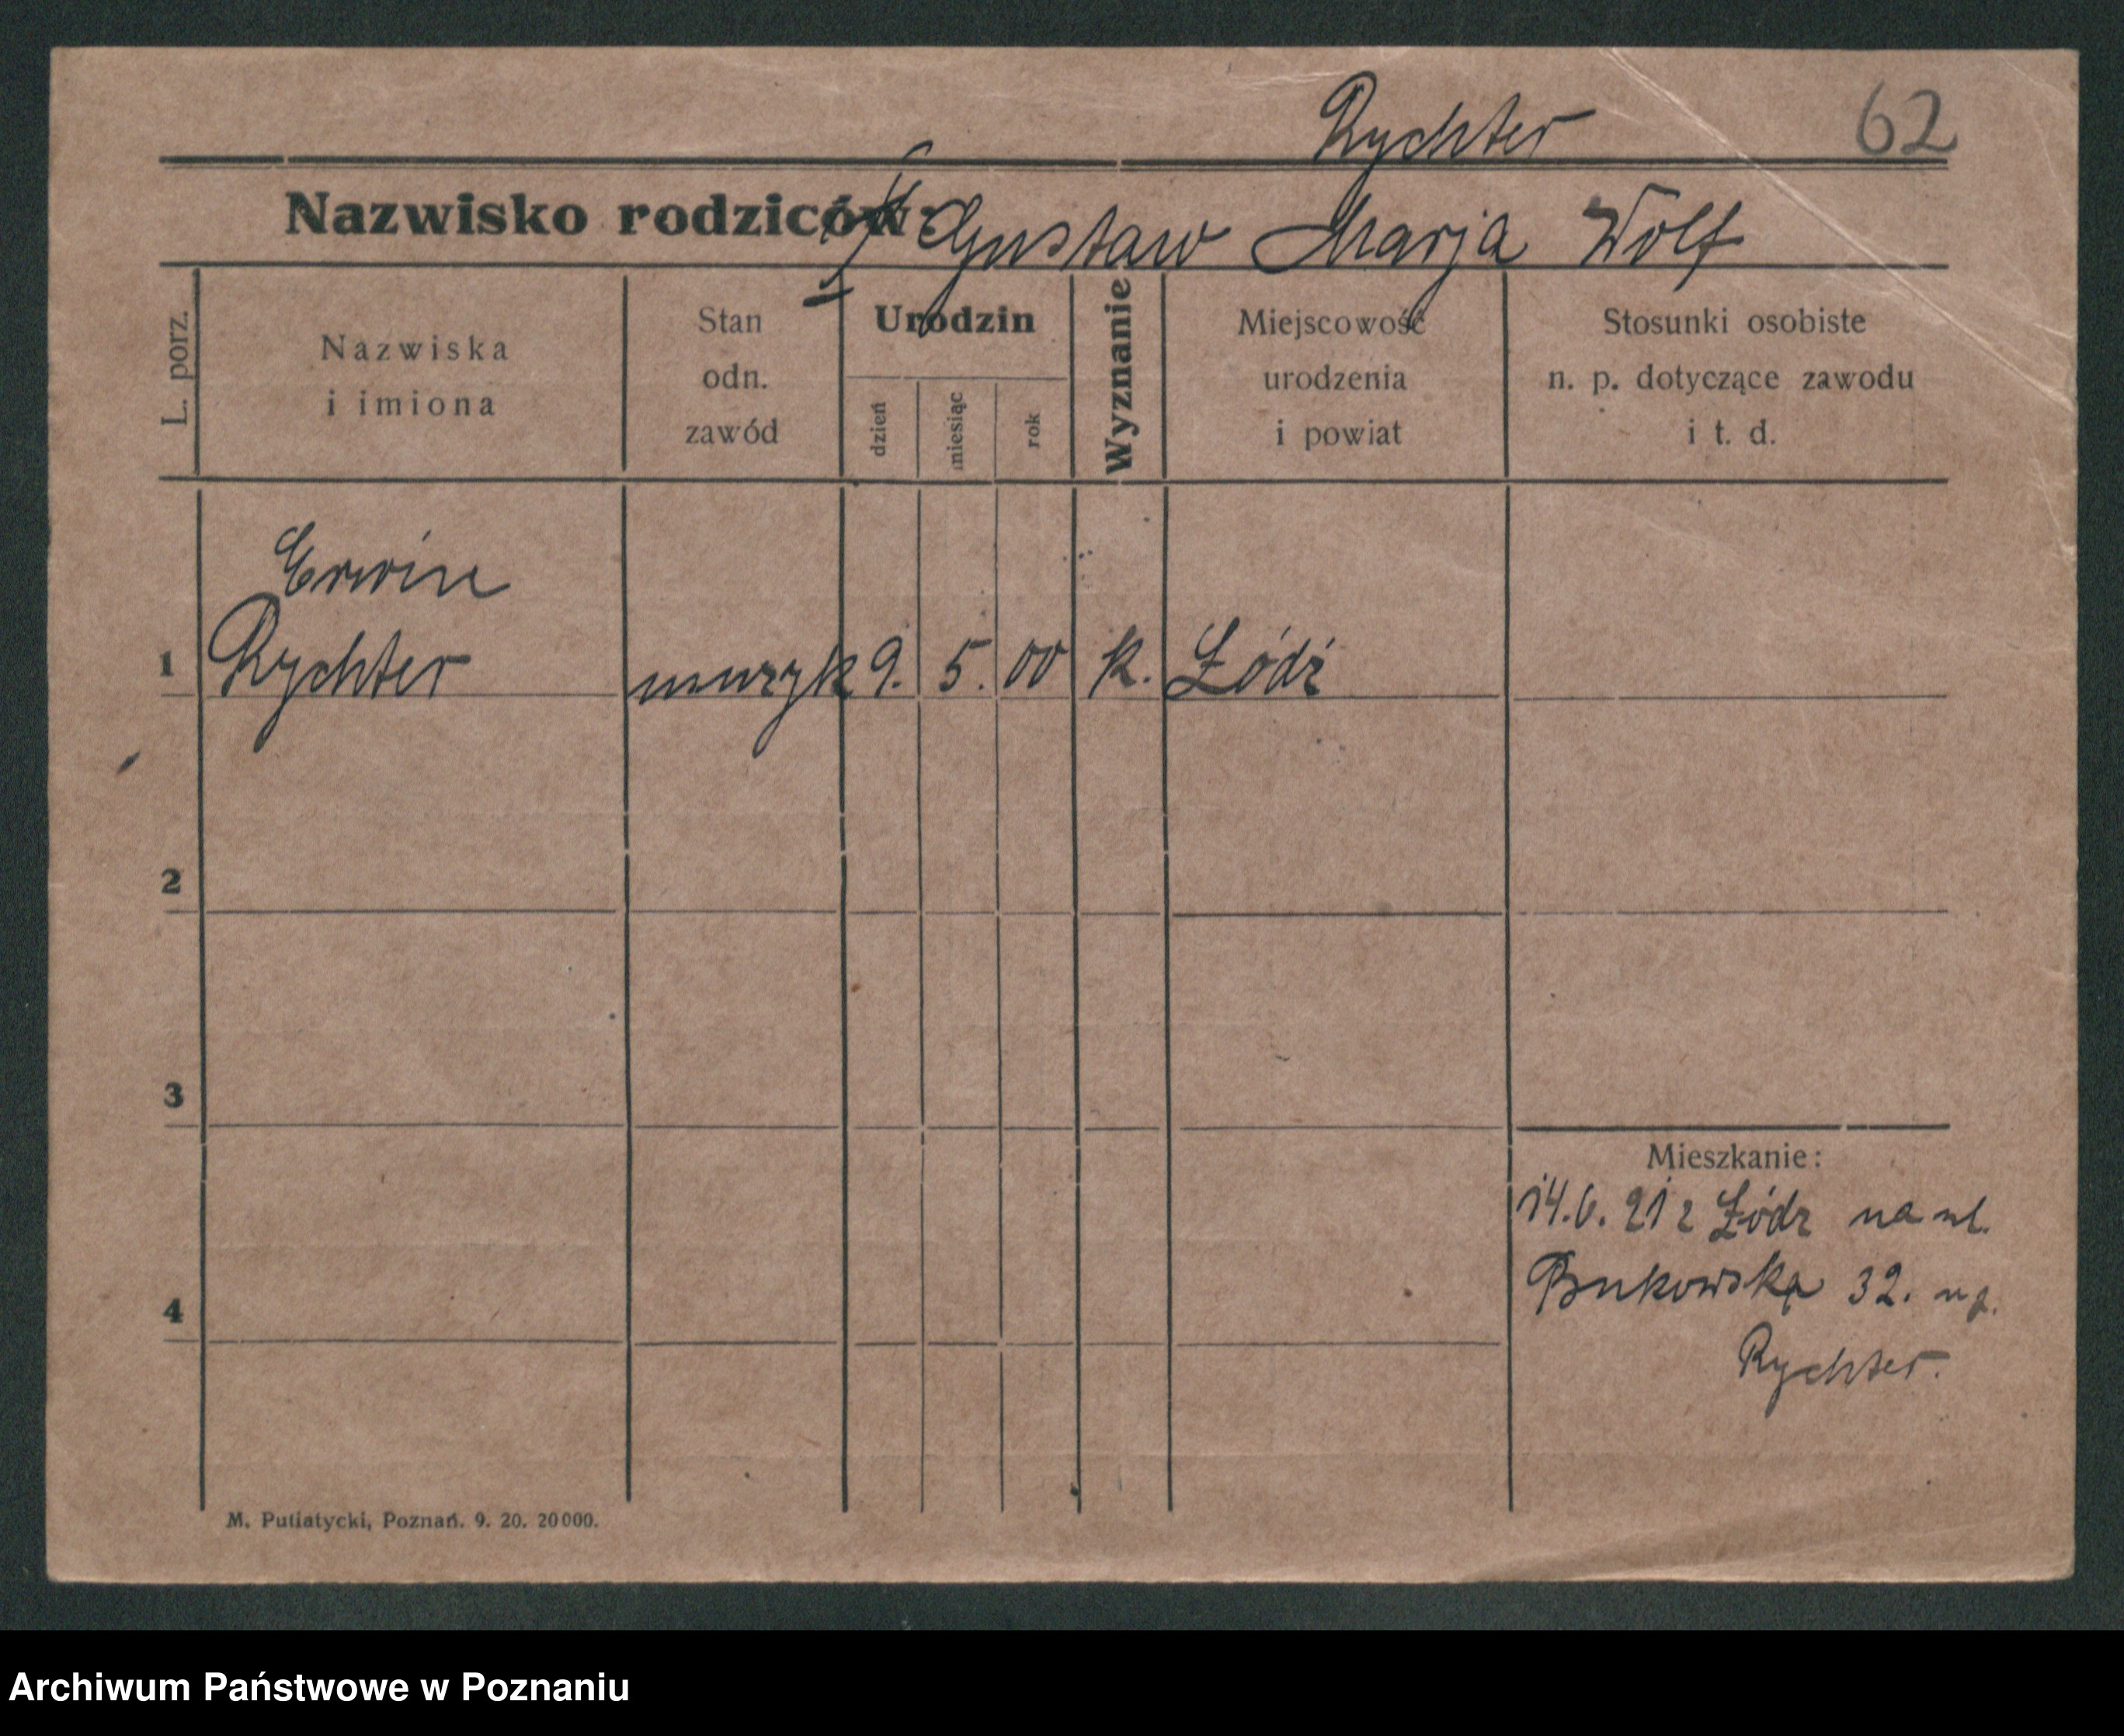 Rychter 62
Nazwisko rodziców: Gustaw Marja Wolf
L. porz.
Nazwiska
i imiona
Stan
odn.
zawód
Urodzin
dzień
miesiąc
rok
Wyznanie
Miejscowość
urodzenia
i powiat
Stosunki osobiste
n. p. dotyczące zawodu
i t. d.
Erwin
1 Rychter muzyk 9. 5. 00 k. Łódź
2
3
Mieszkanie:
14.6.21 z Łódz na ul.
Bukowska 32.
4
Rychter.
M. Putiatycki, Poznań. 9. 20. 20000.
Archiwum Państwowe w Poznaniu